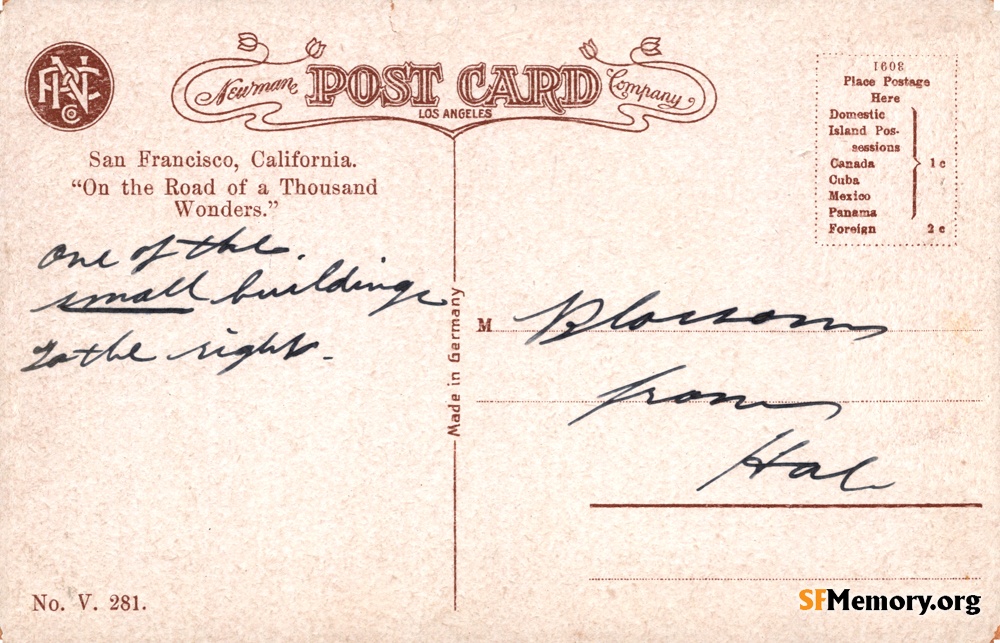 PNC Co
Newman POST CARD Company
LOS ANGELES
San Francisco, California.
"On the Road of a Thousand
Wonders."
One of the
small buildings
to the right.
No. V. 281.
Made in Germany
1608
Place Postage
Here
Domestic
Island Pos-
sessions
Canada
Cuba
Mexico
Panama
1 c
Foreign 2 c
M Blossom
from
Hal
SFMemory.org